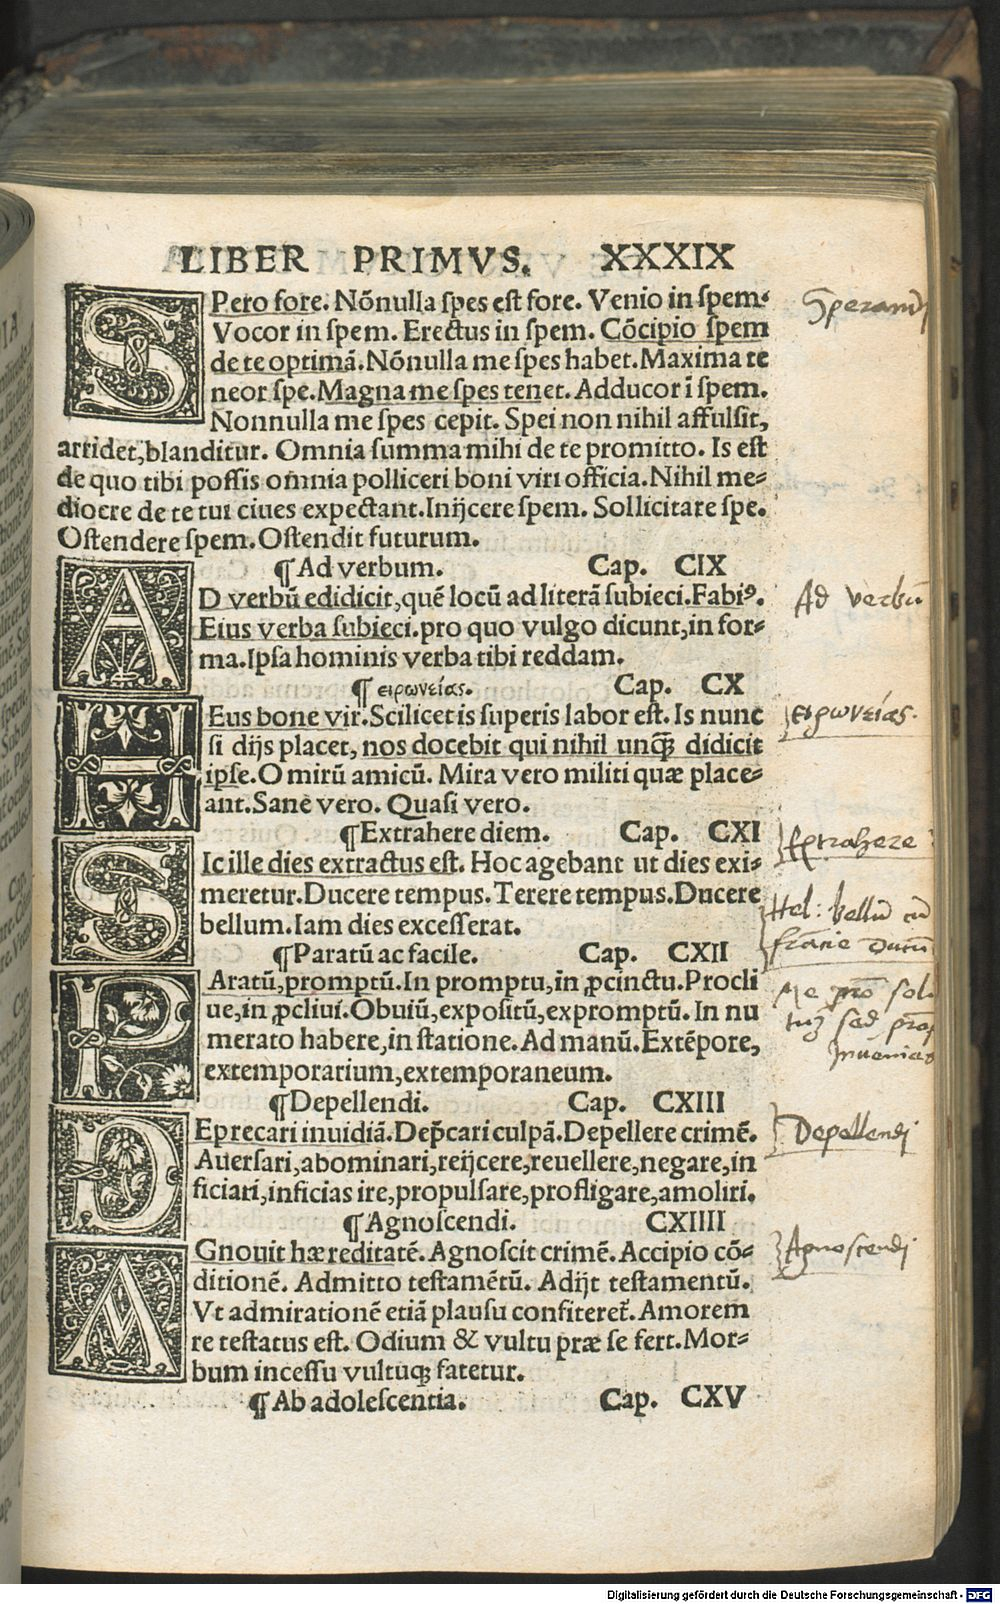 LIBER PRIMVS. XXXIX
SPero fore. Nõnulla ſpes eſt fore. Venio in ſpem.
Vocor in ſpem. Erectus in ſpem. Cõcipio ſpem
de te optimã. Nõnulla me ſpes habet. Maxima te
neor ſpe. Magna me ſpes tenet. Adducor ĩ ſpem.
Nonnulla me ſpes cepit. Spei non nihil affulſit,
arridet, blanditur. Omnia ſumma mihi de te promitto. Is eſt
de quo tibi poſſis omnia polliceri boni viri officia. Nihil me-
diocre de te tui ciues expectant. Inijcere ſpem. Sollicitare ſpẽ.
Oſtendere ſpem. Oſtendit futurum.
¶ Ad verbum. Cap. CIX
AD verbũ edidicit, quẽ locũ ad literã ſubieci. Fabiꝰ.
Eius verba ſubieci. pro quo vulgo dicunt, in for-
ma. Ipſa hominis verba tibi reddam.
¶ ειρωνείας. Cap. CX
HEus bone vir. Scilicet is ſuperis labor eſt. Is nunc
ſi dijs placet, nos docebit qui nihil unq̃ didicit
ipſe. O mirũ amicũ. Mira vero militi quæ place-
ant. Sane vero. Quaſi vero.
¶ Extrahere diem. Cap. CXI
SIc ille dies extractus eſt. Hoc agebant ut dies exi-
meretur. Ducere tempus. Terere tempus. Ducere
bellum. Iam dies exceſſerat.
¶ Paratũ ac facile. Cap. CXII
PAratũ, promptũ. In promptu, in ꝓcinctu. Procli
ue, in ꝓcliui. Obuiũ, expoſitũ, expromptũ. In nu
merato habere, in ſtatione. Ad manũ. Extẽpore,
extemporarium, extemporaneum.
¶ Depellendi. Cap. CXIII
DEprecari inuidiã. Dep̃cari culpã. Depellere crimẽ.
Auerſari, abominari, reijcere, reuellere, negare, in
ficiari, inficias ire, propulſare, profligare, amoliri.
¶ Agnoſcendi. CXIIII
AGnouit hæreditatẽ. Agnoſcit crimẽ. Accipio cõ-
ditionẽ. Admitto teſtamẽtũ. Adijt teſtamentũ.
Vt admirationẽ etiã plauſu confiteret̃. Amorem
re teſtatus eſt. Odium & vultu præ ſe fert. Mor-
bum inceſſu vultuq; fatetur.
¶ Ab adoleſcentia. Cap. CXV
Sperandi
Ad verbũ
ειρωνείας.
Extrahere
Hel: bellũ cũ
Me
Inuenias
Depellendi
Agnoscendi
Digitalisierung gefördert durch die Deutsche Forschungsgemeinschaft - DFG